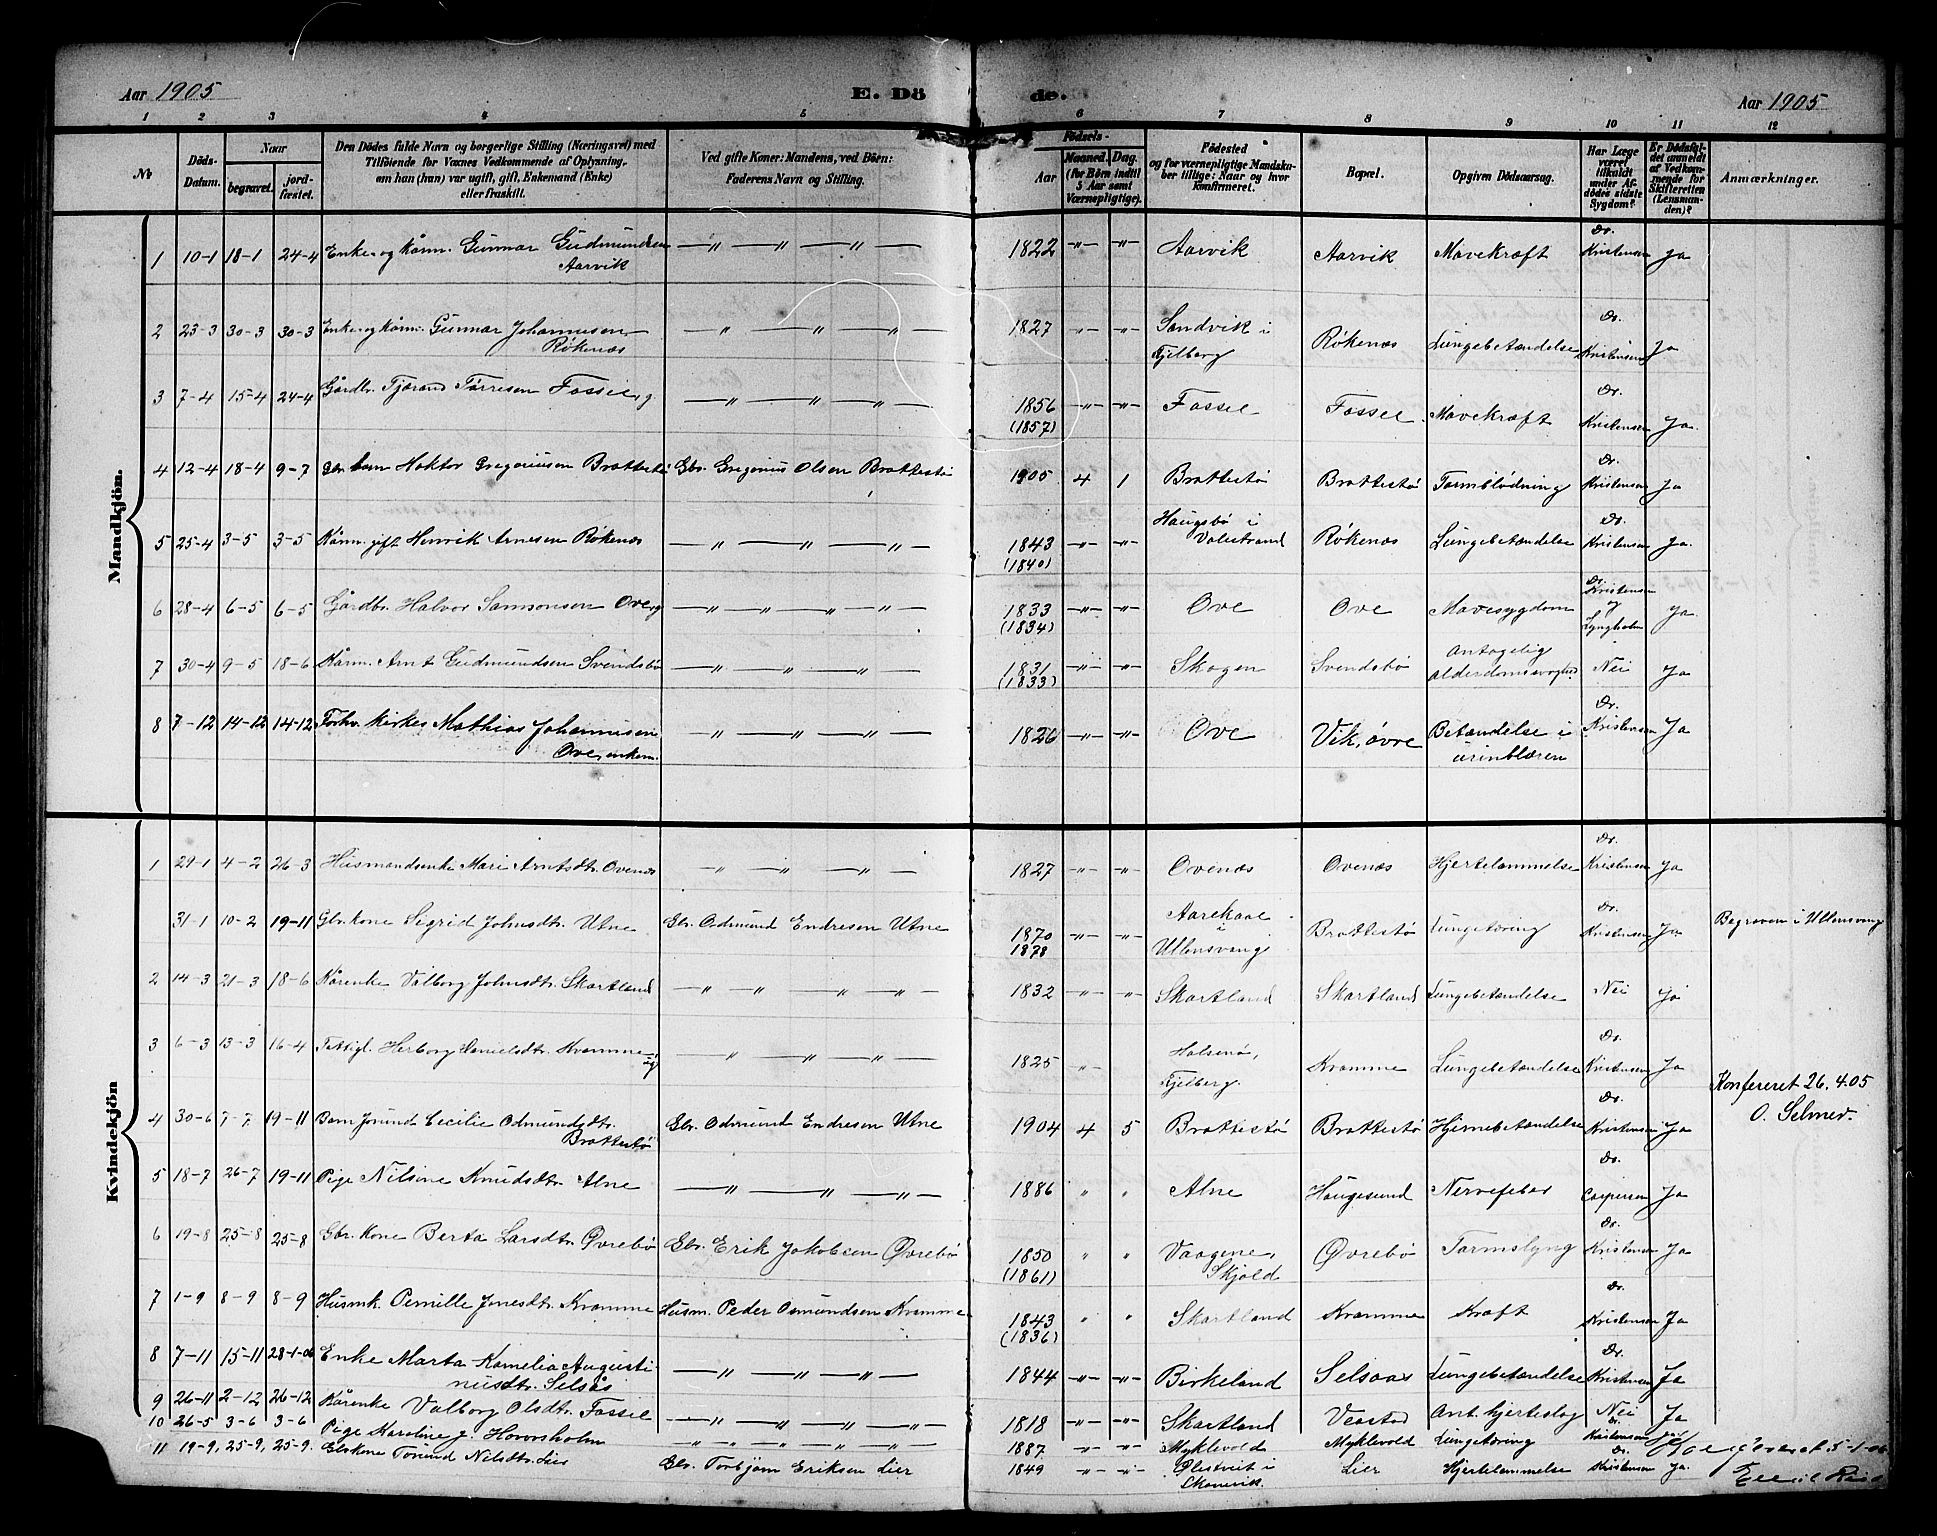 Aar 1905
E. Dö
de.
Aar 1905
1 2 3 4 5 6 7 8 9 10 11 12
No
Döds-Datum.
Naar
begravet.
jord-fæstet.
Den Dödes fulde Navn og borgerlige Stilling (Næringsvei) med
Tilföiende for Voxnes Vedkommende af Oplysning,
om han (hun) var ugift, gift, Enkemand (Enke)
eller fraskilt.
Ved gifte Koner: Mandens, ved Börn:
Faderens Navn og Stilling.
Födsels-
Aar
Maaned. Dag.
(for Börn indtil
5 Aar samt
Værnepligtige).
Födested
og for værnepligtige Mandsku-
ber tillige: Naar og hvor
konfirmeret.
Bopæl.
Opgiven Dödsaarsag.
Har Læge
været
tilkaldt
under Af-
dödes sidste
Sygdom?
Er Dödsfal-
det anmeldt
af Vedkom-
mende for
Skifteretten
(Lensman-
den)?
Anmærkninger.
Mandkjön.
1 10-1 18-1 24-4 Enke- og kårm. Gunnar Gudmundsen Aarvik —„— 1822 -„- -„- Aarvik Aarvik Mavekræft Dr. Kristensen Ja
2 23-3 30-3 30-3 Enke- og kårm. Gunnar Johannesen Røkenæs —„— 1827 -„- -„- Sandvik i Fjelberg Røkenæs Lungebetændelse Dr. Kristensen Ja
3 7-4 15-4 24-4 Gårdbr. Tjærand Tørresen Fosse, g. —„— 1856 (1857) -„- -„- Fosse Fosse Mavekræft Dr. Kristensen Ja.
4 12-4 18-4 9-7 Gbr. barn Haktor Gregoriusen Brattestø Gbr. Gregorius Olsen Brattestø 1905 4 1 Brattestø Brattestø Tarmblødning Dr. Kristensen Ja
5 25-4 3-5 3-5 Kårm. gift Henrik Arnesen Røkenæs —„— 1843 (1840) -„- -„- Haugsbø i Valestrand Røkenæs Lungebetændelse Dr. Kristensen Ja.
6 28-4 6-5 6-5 Gårdbr. Halvor Samsonsen Ove, g —„— 1833 (1834) -„- -„- Ove Ove Mavesygdom Dr. Kristensen og Lyngholm Ja
7 30-4 9-5 18-6 Kårm. Arnt Gudmundsen Svendsbø —„— 1831 (1833) -„- -„- Skogen Svendsbø Antagelig alderdomssvaghed. Nei Ja
8 7-12 14-12 14-12 Forhv. kirkes. Mathias Johannesen Ove, enkem. —„— 1826 -„- -„- Ove Vik, øvre Betændelse i urinblæren Dr. Kristensen Ja
Kvindekjön
1 29-1 4-2 26-3 Husmandsenke Mari Arntsdtr. Ovenæs —„— 1827 -„- -„- Ovenæs Ovenæs Hjertelammelse Dr. Kristensen Ja
31-1 10-2 19-11 Gbr. kone Sigrid Johnsdtr. Utne Gbr. Odmund Endresen Utne 1870 1878 -„- -„- i Ullensvang Brattestø Lungetæring Dr. Kristensen Ja Begraven i Ullensvang
2 14-3 21-3 18-6 Kårenke Valborg Johnsdtr. Skartland —„— 1832 -„- -„- Skartland Skartland Lungebetændelse Nei Ja
3 6-3 13-3 16-4 Fattigl. Herborg Danielsdtr. Kramme, ug —„— 1825 -„- Halsenø, Fjelberg. Kramme Lungebetændelse Dr. Kristensen Ja
Konfereret 26.4.05
O. Selmer.
4 30-6 7-7 19-11 Barn Jorund Cecilie Odmundsdtr. Brattestø Gbr. Odmund Endresen Utne 1904 4 5 Brattestø Brattestø Hjernebetændelse Dr. Kristensen Ja
5 18-7 26-7 19-11 Pige Nilsine Knudsdtr. Alne —„— 1886 „ „ Alne Haugesund Nervefeber Dr. Caspersen Ja
6 19-8 25-8 25-8 Gbr. kone Berta Larsdtr. Øvrebø Gbr. Erik Jakobsen Øvrebø 1850 (1861) „ „ Vaagene, Skjold Øvrebø Tarmslyng Dr. Kristensen Ja
7 1-9 8-9 8-9 Husmk. Pernille Jonesdtr. Kramme Husm. Peder Osmundsen Kramme 1843 (1836) „ „ Skartland Kramme Kræft Dr. Kristensen Ja
8 7-11 15-11 28-1-06 Enke Marta Kornelia Augustinusdtr. Selsås —„— 1844 -„- -„- Birkeland Selsaas Lungebetændelse Dr. Kristensen Ja
9 26-11 2-12 26-12 Kårenke Valborg Olsdtr. Fosse —„— 1818 -„- -„- Skartland Veastad Ant. hjerteslag Nei Ja
10 26-5 3-6 3-6 Pige Karoline J. Hovorsholm —„— 1887. -„- -„- Myklevold Myklevold Lungetæring Dr. Kristensen Ja.
11 19-9, 25-9, 25-9. Gbrkone Torund Nilsdtr. Lier Gbr. Torbjørn Eriksen Lier 1849 -„- -„- Ølstveit i Skonevik. Lier Hjertelammelse Dr. Kristensen Ja.
5-1-06